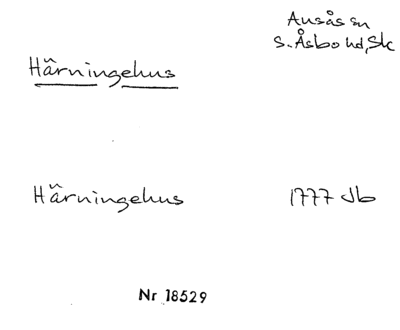 Ausås sn
S. Åsbo hd, Sk
Härningehus
Härningehus 1777 Jb
Nr 18529